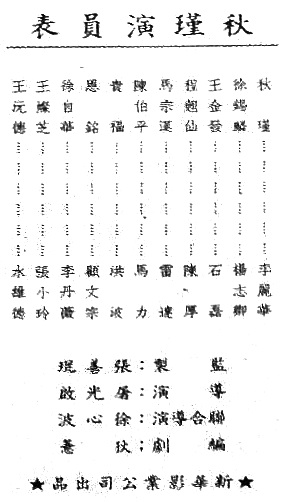 秋瑾演員表
秋瑾……李麗華
徐錫麟……楊志卿
王金發……石磊
程翹仙……陳厚
馬宗漢……雷達
陳伯平……馬力
貴福……洪波
恩銘……顧文宗
徐自華……李丹薇
王燦芝……張小玲
王沅德……永雄德
監製：張善琨
導演：屠光啟
聯合導演：徐心波
編劇：狄薏
★新華影業公司出品★